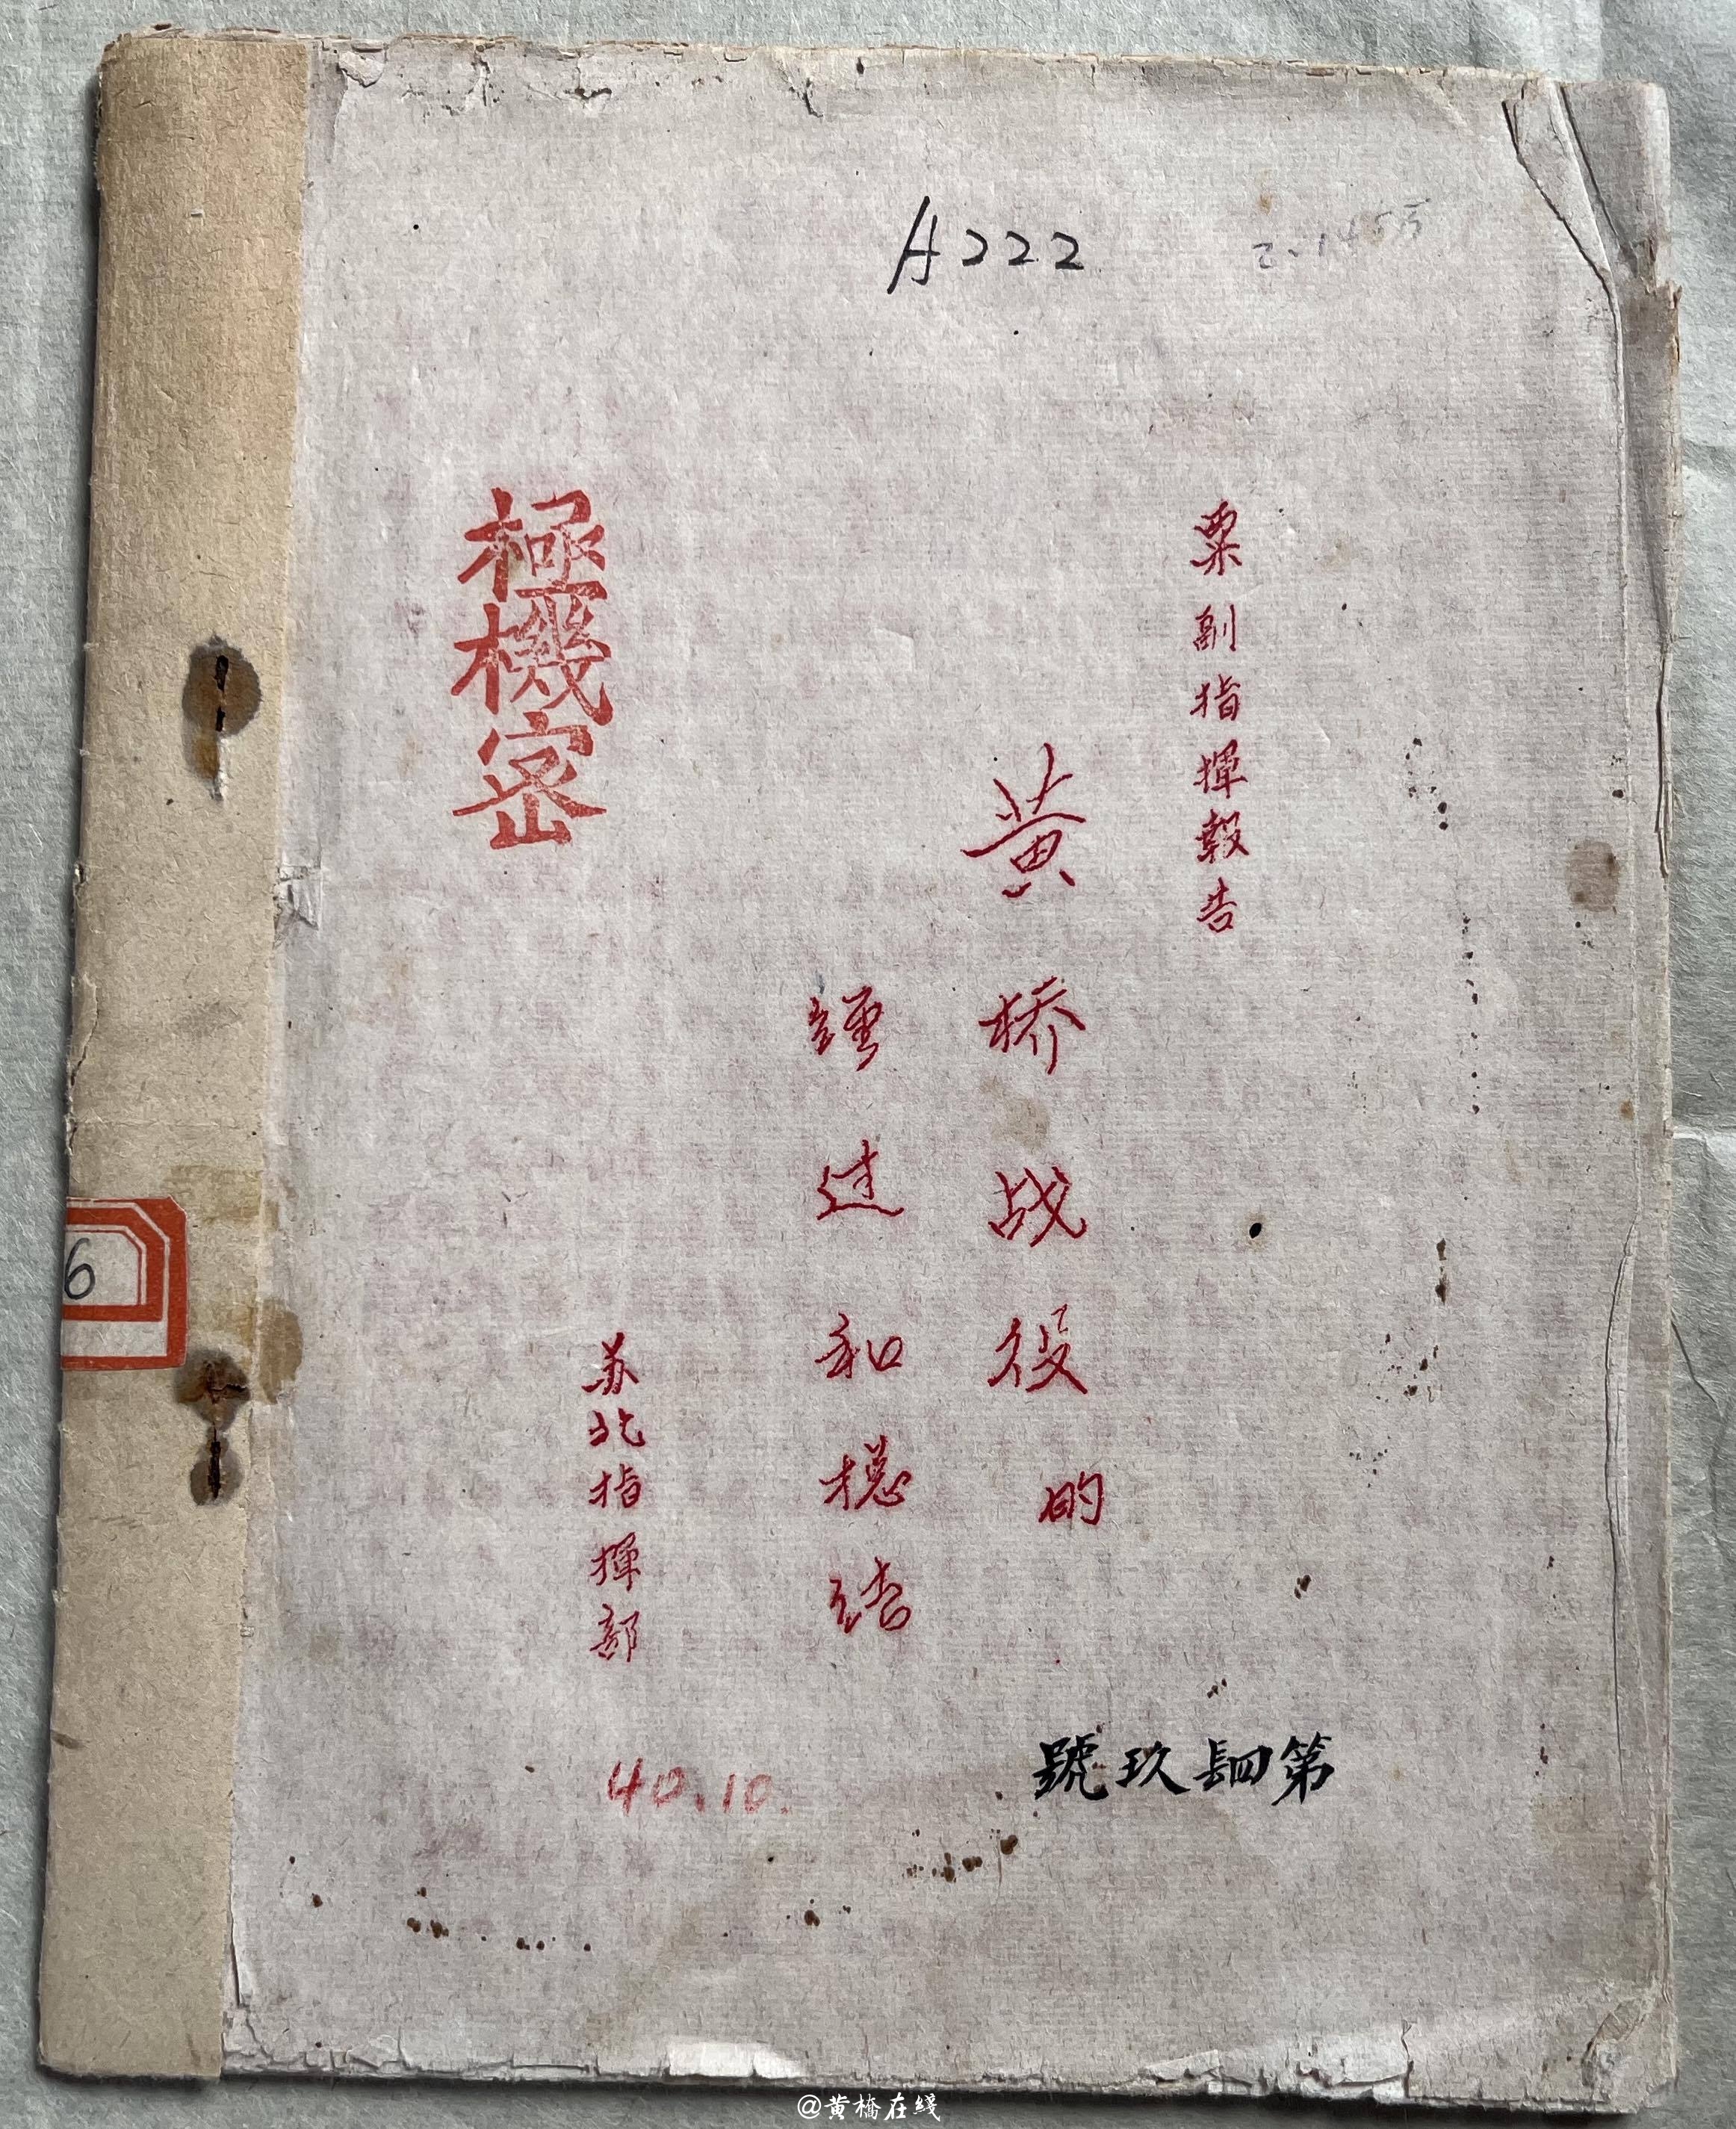 A222
粟副指揮報告
黄桥战役的
經过和總结
極機密
苏北指揮部
40.10.
第肆玖號
6
@黄橋在綫